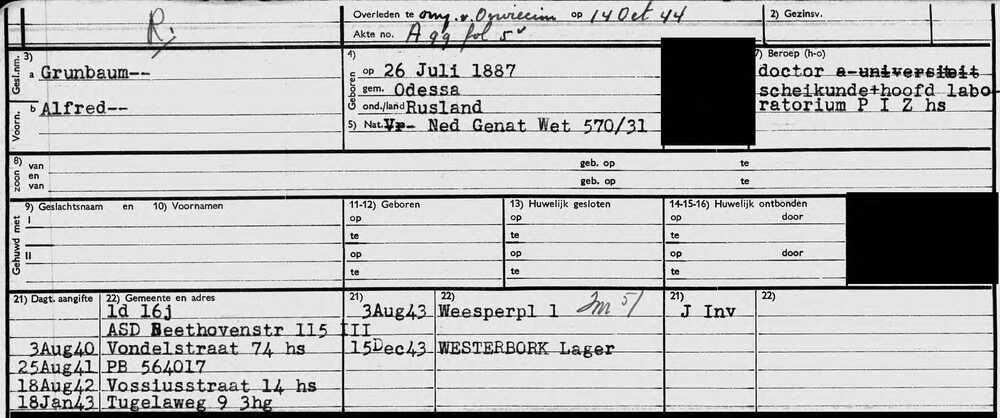 R. Overleden te omg. v. Oswiecim op 14 Oct 44 2) Gezinsv.
Akte no. A 99 fol 5v
3) 4) 7) Beroep (h-o)
Gesl.nm. a Grunbaum-- Geboren op 26 Juli 1887 doctor a-universiteit
gem. Odessa scheikunde+hoofd labo-
Voorn. b Alfred-- ond./land Rusland ratorium P I Z hs
5) Nat. Vr- Ned Genat Wet 570/31
8) zoon en van geb. op te
en
van geb. op te
9) Geslachtsnaam en 10) Voornamen 11-12) Geboren 13) Huwelijk gesloten 14-15-16) Huwelijk ontbonden
Gehuwd met I op op op door
te te te
II op op op door
te te te
21) Dagt. aangifte 22) Gemeente en adres 21) 22) 21) 22)
1d 16j 3Aug43 Weesperpl 1 J Inv
ASD Beethovenstr 115 III
3Aug40 Vondelstraat 74 hs 15Dec43 WESTERBORK Lager
25Aug41 PB 564017
18Aug42 Vossiusstraat 14 hs
18Jan43 Tugelaweg 9 3hg